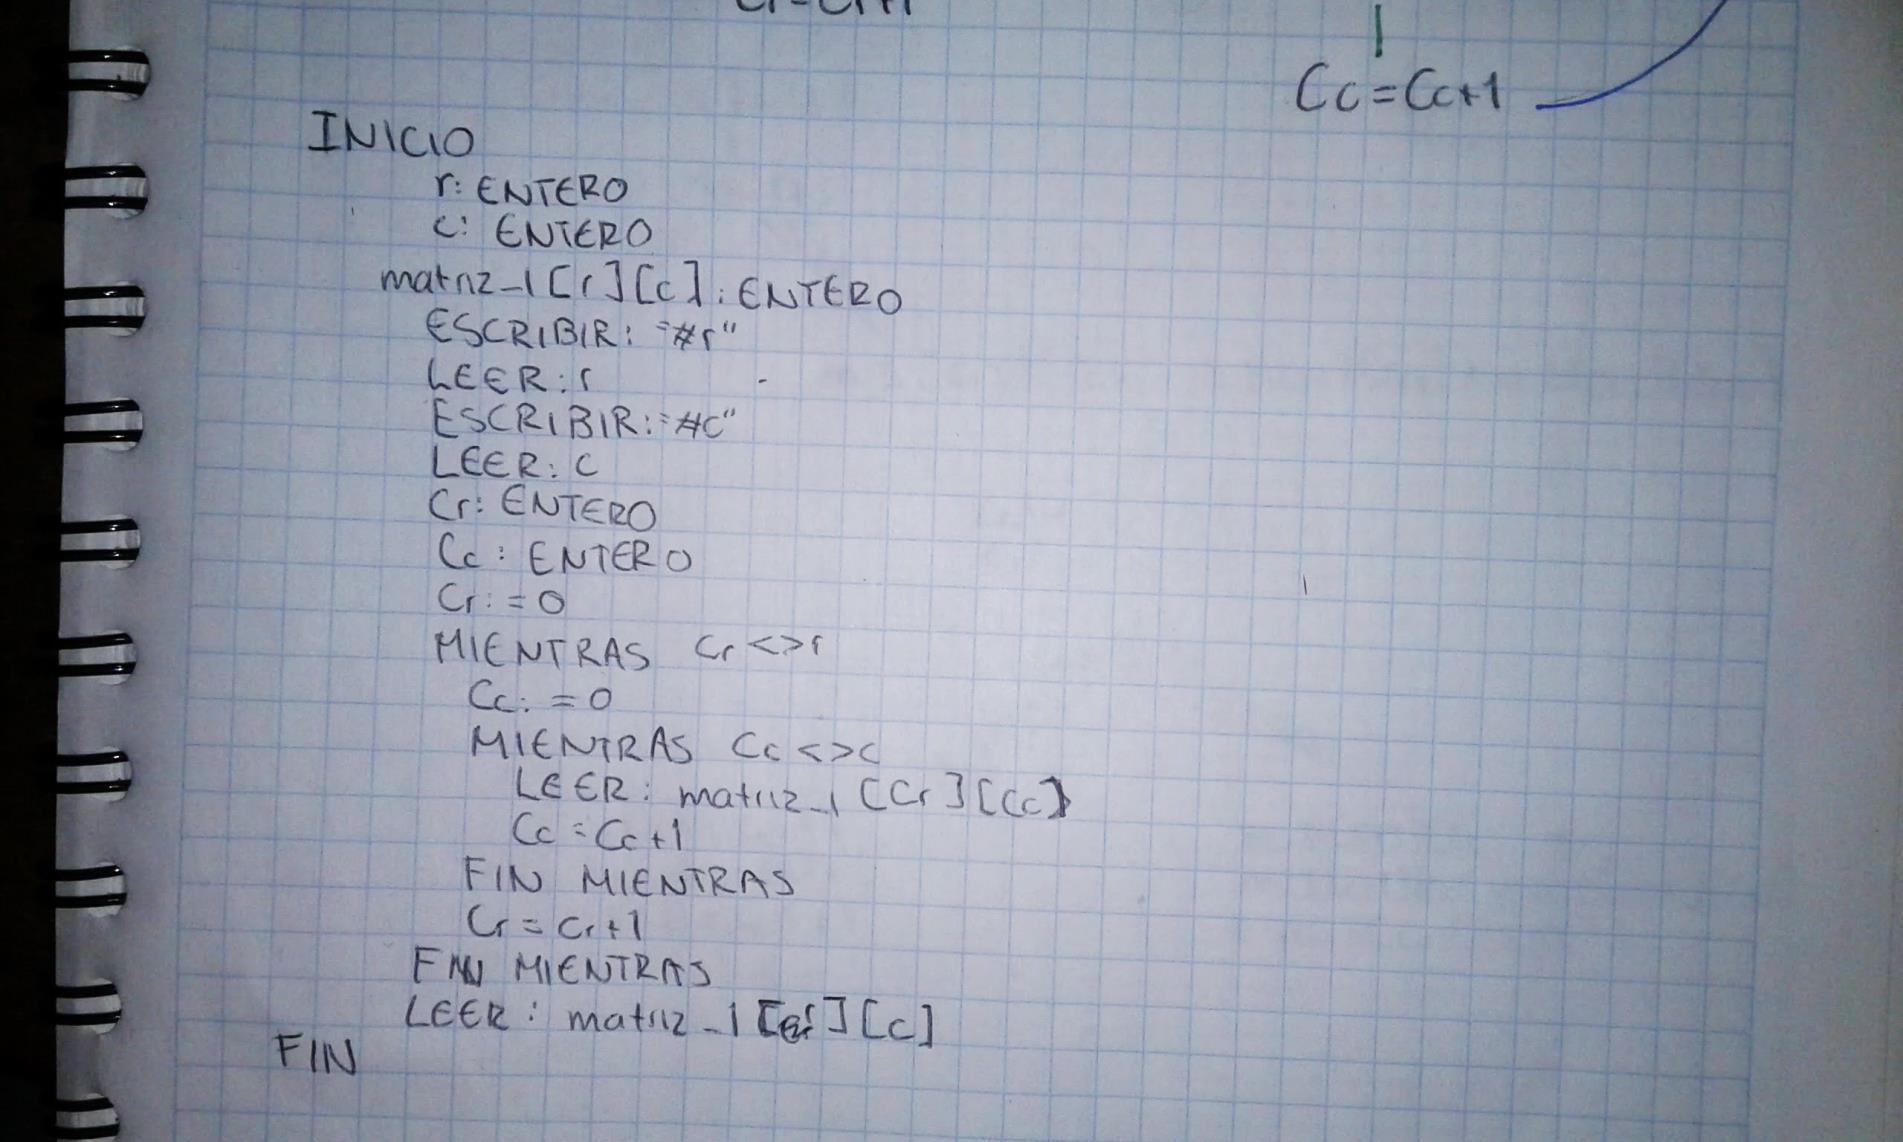 Cc=Cc+1
INICIO
r: ENTERO
c: ENTERO
matriz_1[r][c]: ENTERO
ESCRIBIR: "#r"
LEER: r
ESCRIBIR: "#C"
LEER: C
Cr: ENTERO
Cc: ENTERO
Cr:=0
MIENTRAS Cr<>r
Cc:=0
MIENTRAS Cc<>c
LEER: matriz_1[Cr][Cc]
Cc=Cc+1
FIN MIENTRAS
Cr=Cr+1
FIN MIENTRAS
LEER: matriz_1[r][c]
FIN